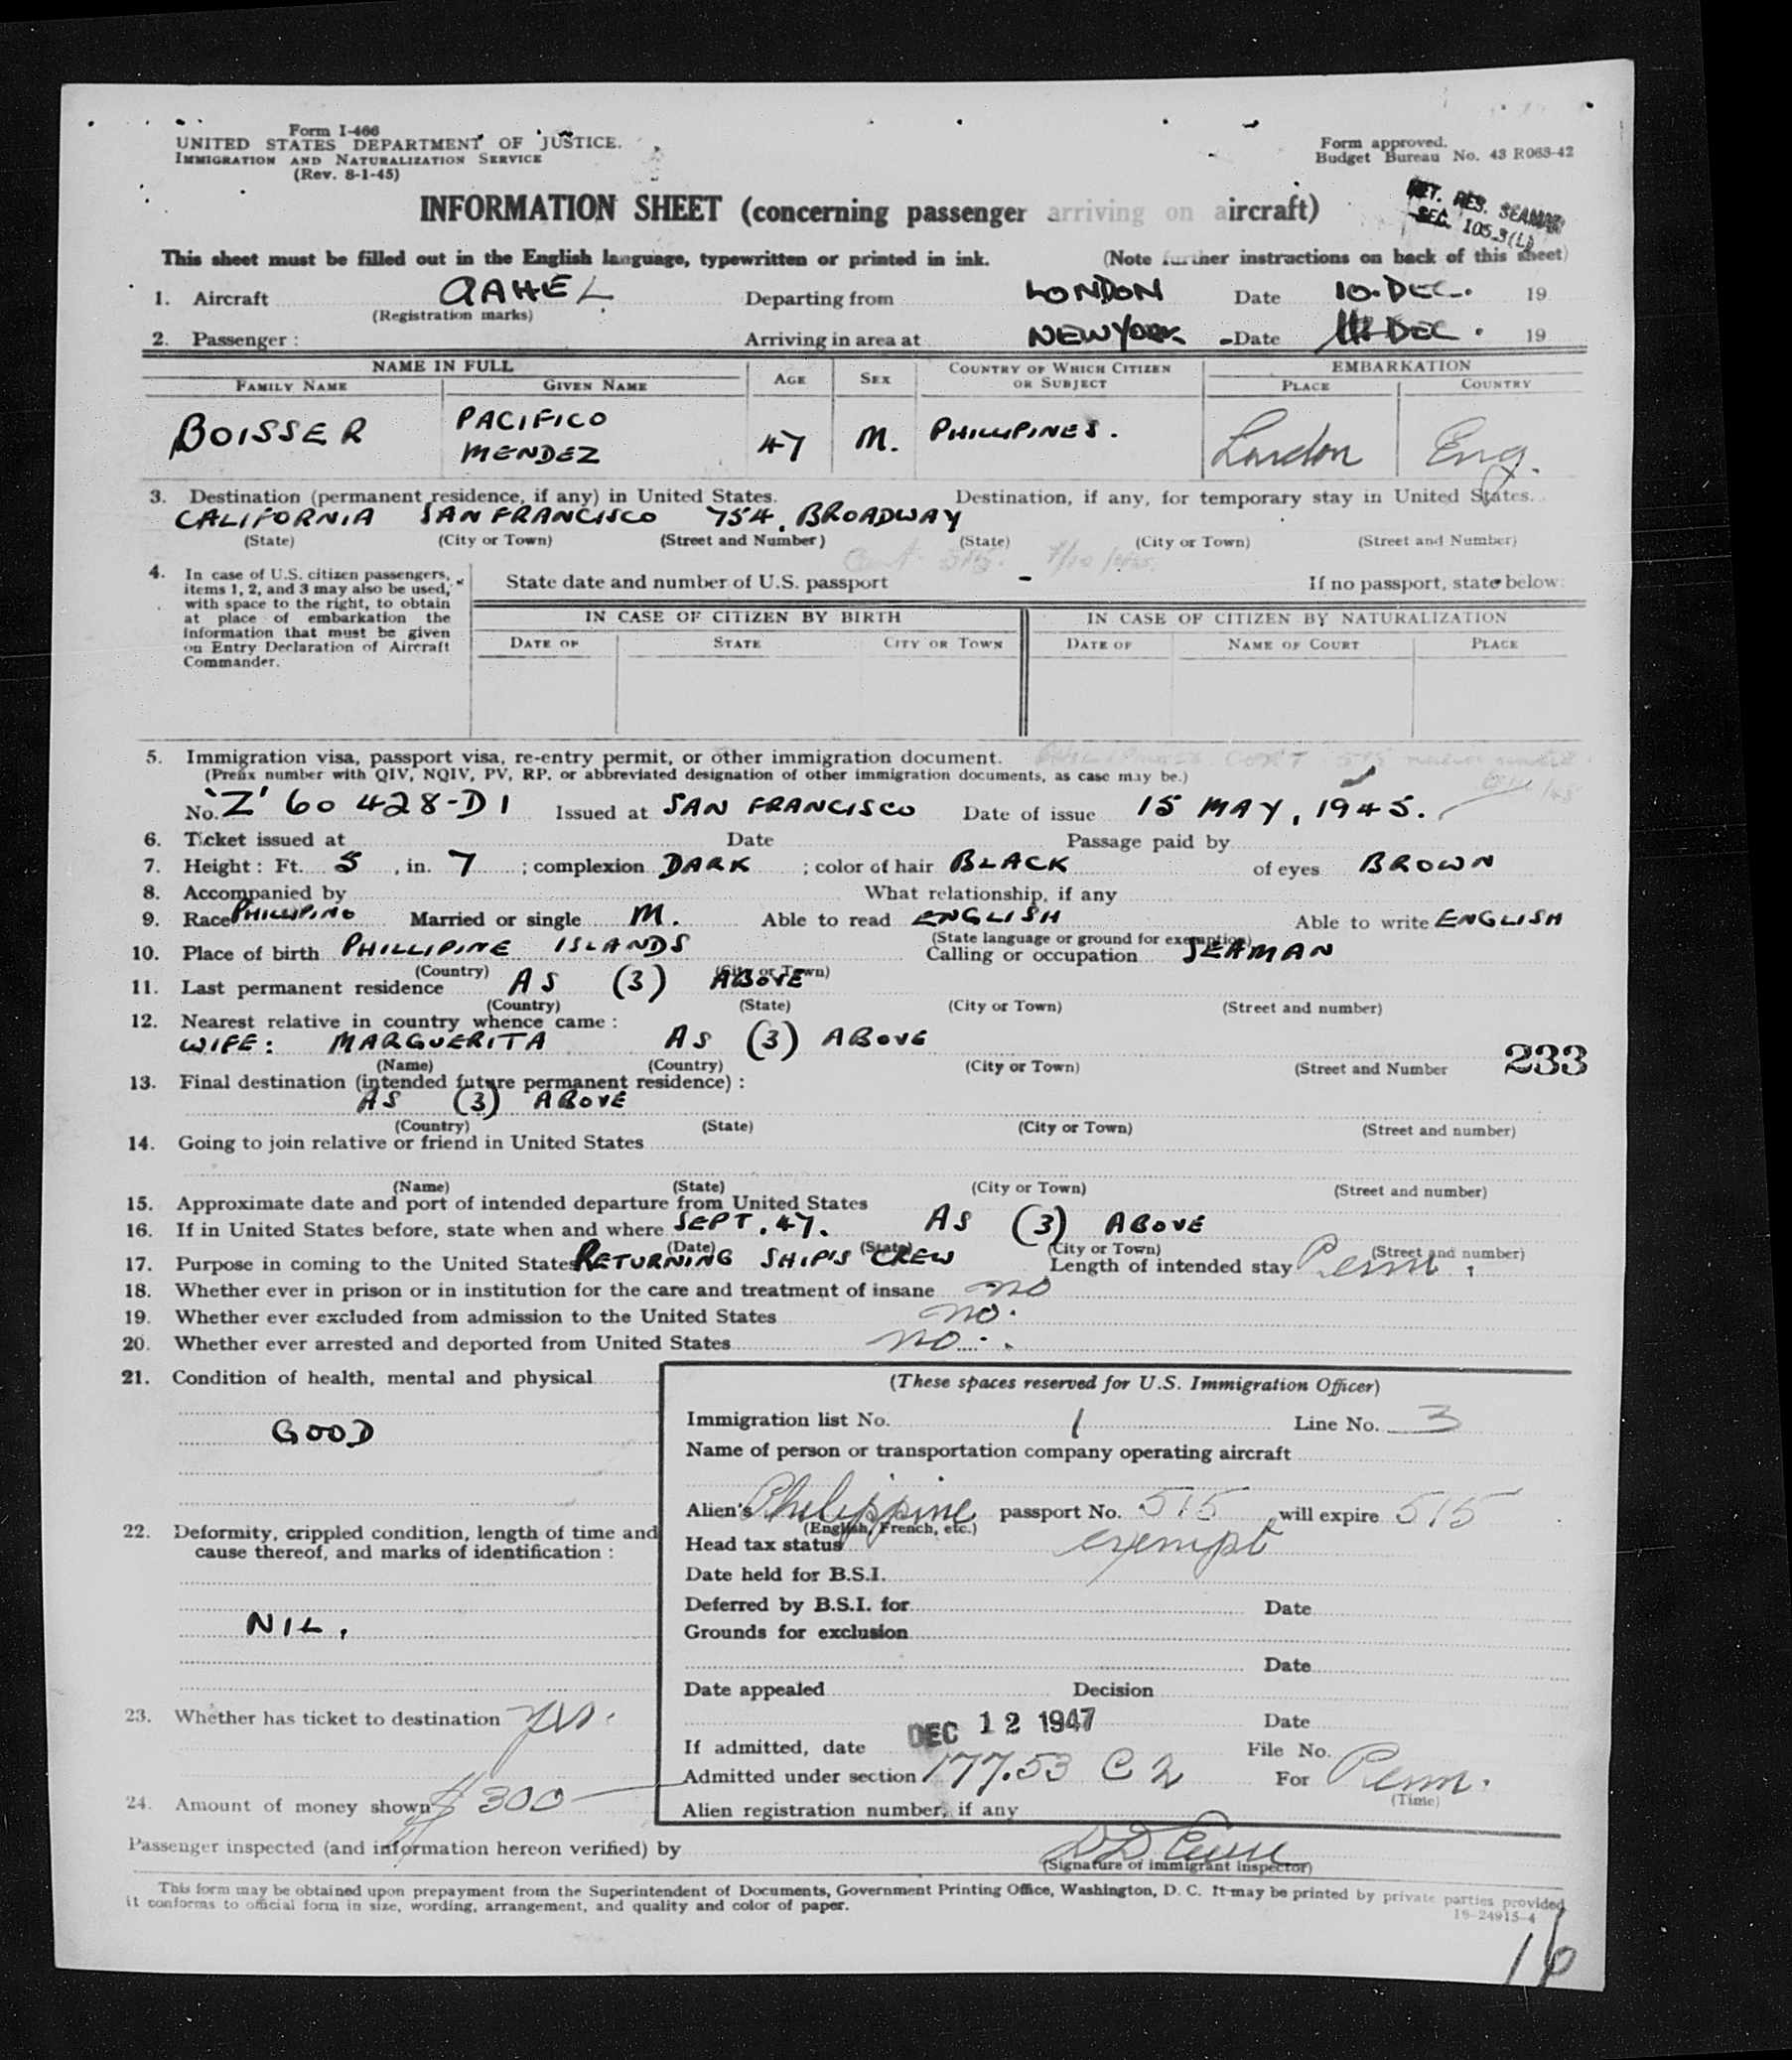 Form I-466
UNITED STATES DEPARTMENT OF JUSTICE.
IMMIGRATION AND NATURALIZATION SERVICE
(Rev. 8-1-45)
Form approved.
Budget Bureau No. 43 R063-42
INFORMATION SHEET (concerning passenger arriving on aircraft)
RET. RES. SEAMAN
SEC. 105.3(L)
This sheet must be filled out in the English language, typewritten or printed in ink. (Note further instructions on back of this sheet)
1. Aircraft GAHEL Departing from LONDON Date 10. DEC. 19
(Registration marks)
2. Passenger : Arriving in area at NEW YORK. Date 11 DEC. 19
NAME IN FULL AGE SEX COUNTRY OF WHICH CITIZEN OR SUBJECT EMBARKATION
FAMILY NAME GIVEN NAME PLACE COUNTRY
BOISSER PACIFICO MENDEZ 47 M. PHILLIPINES. London Eng.
3. Destination (permanent residence, if any) in United States. Destination, if any, for temporary stay in United States.
CALIFORNIA SAN FRANCISCO 754. BROADWAY
(State) (City or Town) (Street and Number) (State) (City or Town) (Street and Number)
4. In case of U.S. citizen passengers, items 1, 2, and 3 may also be used, with space to the right, to obtain at place of embarkation the information that must be given on Entry Declaration of Aircraft Commander.
State date and number of U.S. passport - If no passport, state below:
IN CASE OF CITIZEN BY BIRTH IN CASE OF CITIZEN BY NATURALIZATION
DATE OF STATE CITY OR TOWN DATE OF NAME OF COURT PLACE
5. Immigration visa, passport visa, re-entry permit, or other immigration document.
(Prefix number with QIV, NQIV, PV, RP. or abbreviated designation of other immigration documents, as case may be.)
No. 'Z' 60 428-D1 Issued at SAN FRANCISCO Date of issue 15 MAY, 1945.
6. Ticket issued at Date Passage paid by
7. Height : Ft. 5 , in. 7 ; complexion DARK ; color of hair BLACK of eyes BROWN
8. Accompanied by What relationship, if any
9. Race PHILLIPINO Married or single M. Able to read ENGLISH Able to write ENGLISH
(State language or ground for exemption)
10. Place of birth PHILLIPINE ISLANDS Calling or occupation SEAMAN
(Country) (City or Town)
11. Last permanent residence AS (3) ABOVE
(Country) (State) (City or Town) (Street and number)
12. Nearest relative in country whence came :
WIFE: MARGUERITA AS (3) ABOVE
(Name) (Country) (City or Town) (Street and Number
233
13. Final destination (intended future permanent residence) :
AS (3) ABOVE
(Country) (State) (City or Town) (Street and number)
14. Going to join relative or friend in United States
(Name) (State) (City or Town) (Street and number)
15. Approximate date and port of intended departure from United States
16. If in United States before, state when and where SEPT. 47. AS (3) ABOVE
(Date) (State) (City or Town) (Street and number)
17. Purpose in coming to the United States RETURNING SHIP'S CREW Length of intended stay Perm.
18. Whether ever in prison or in institution for the care and treatment of insane no
19. Whether ever excluded from admission to the United States no.
20. Whether ever arrested and deported from United States no.
21. Condition of health, mental and physical
GOOD
22. Deformity, crippled condition, length of time and cause thereof, and marks of identification :
NIL.
23. Whether has ticket to destination yes.
24. Amount of money shown $300
(These spaces reserved for U.S. Immigration Officer)
Immigration list No. 1 Line No. 3
Name of person or transportation company operating aircraft
Alien's Philippine passport No. 515 will expire 515
(English, French, etc.)
Head tax status exempt
Date held for B.S.I.
Deferred by B.S.I. for Date
Grounds for exclusion
Date
Date appealed Decision
Date
If admitted, date DEC 12 1947 File No.
Admitted under section 177.53 C 2 For Perm.
(Time)
Alien registration number, if any
Passenger inspected (and information hereon verified) by
(Signature of immigrant inspector)
This form may be obtained upon prepayment from the Superintendent of Documents, Government Printing Office, Washington, D. C. It may be printed by private parties provided
it conforms to official form in size, wording, arrangement, and quality and color of paper.
16-24915-4
16